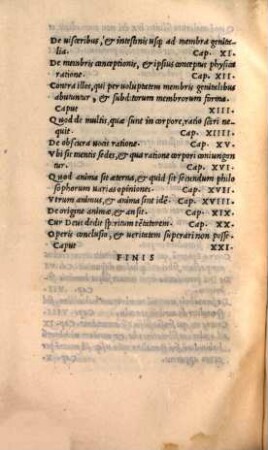 De uisceribus, & intestinis usq; ad membra genita-
lia. Cap. XI.
De mēbris cōceptionis, & ipsius conceptus physica
ratione. Cap. XII.
Contra illos, qui per voluptatem membris genitalibus
abutuntur, & subditorum membrorum forma.
Caput XIII.
Quod de multis, quæ sunt in corpore, ratio sciri ne-
quit. Cap. XIIII.
De obscura uocis ratione. Cap. XV.
Vbi sit mentis sedes, & qua ratione corpori coniungun
tur. Cap. XVI.
Quod anima sit æterna, & quid sit secundum philo
sophorum uarias opiniones. Cap. XVII.
Vtrum animus, & anima sint idē. Cap. XVIII.
De origine animæ, & an sit. Cap. XIX.
Cur Deus dedit spiritum tētatorem. Cap. XX.
Operis conclusio, & ueritatem superari non posse.
Caput XXI.
FINIS